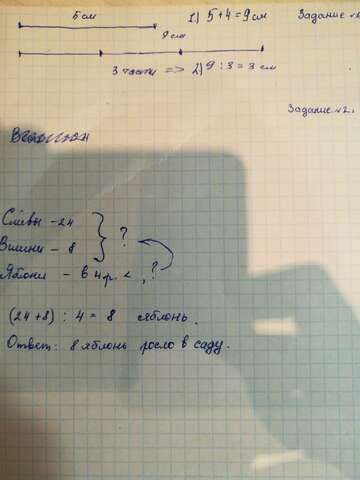 5 см 1) 5+4=9 см Задание
9 см
3 части => 2) 9 : 3 = 3 см
Задание №2.
Сливы - 24
Вишни - 8 } ?
Яблони - в 4 р. <, ?
(24+8) : 4 = 8 яблонь.
Ответ: 8 яблонь росло в саду.